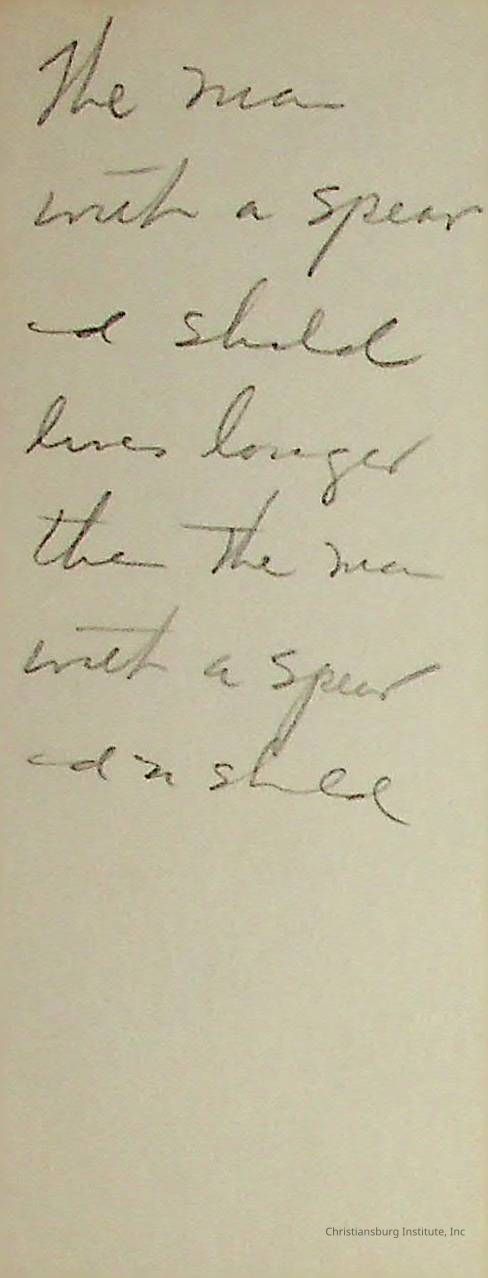 The man
with a spear
and shield
lives longer
than the man
with a spear
and no shield
Christiansburg Institute, Inc